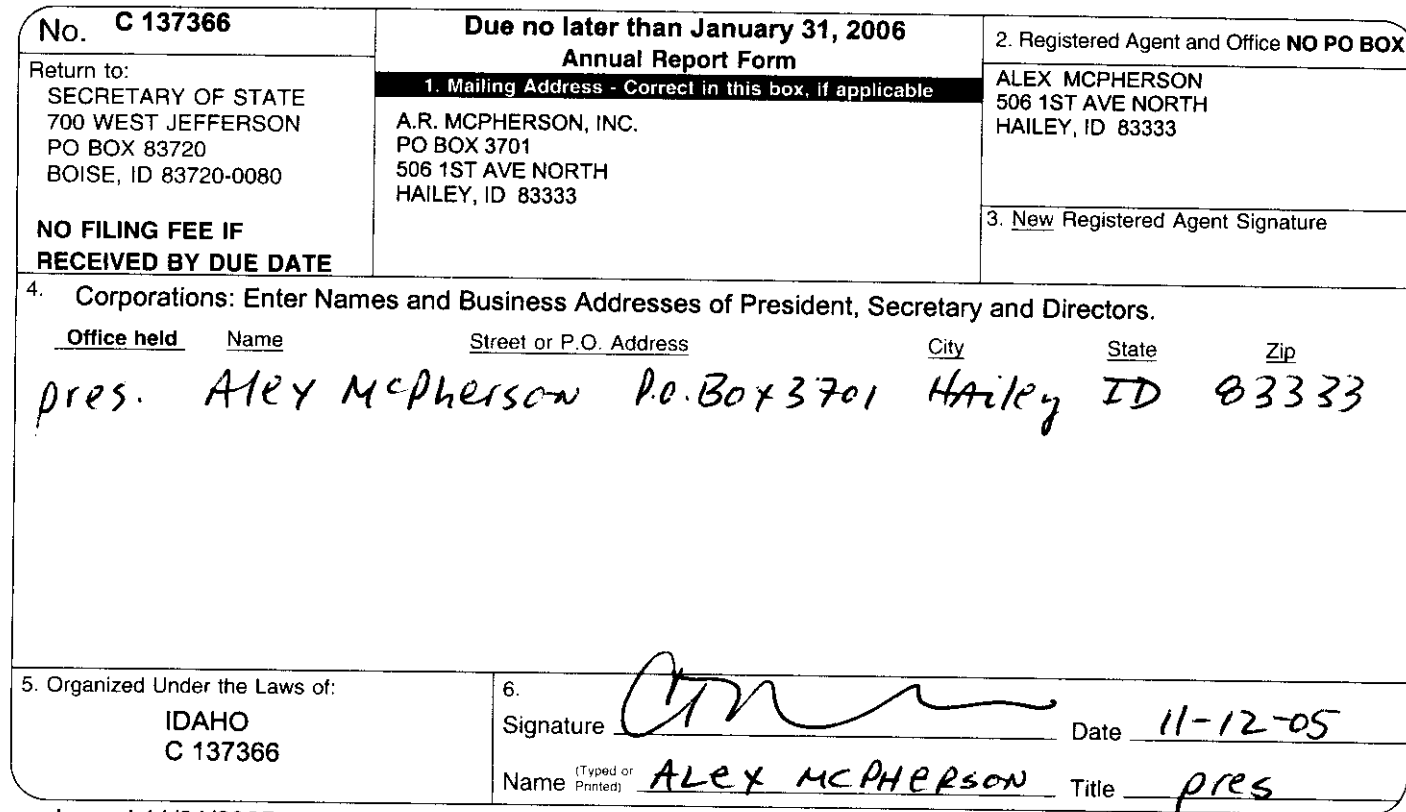 No. C 137366
Return to:
SECRETARY OF STATE
700 WEST JEFFERSON
PO BOX 83720
BOISE, ID 83720-0080
NO FILING FEE IF
RECEIVED BY DUE DATE
Due no later than January 31, 2006
Annual Report Form
1. Mailing Address - Correct in this box, if applicable
A.R. MCPHERSON, INC.
PO BOX 3701
506 1ST AVE NORTH
HAILEY, ID 83333
2. Registered Agent and Office NO PO BOX
ALEX MCPHERSON
506 1ST AVE NORTH
HAILEY, ID 83333
3. New Registered Agent Signature
4. Corporations: Enter Names and Business Addresses of President, Secretary and Directors.
Office held Name Street or P.O. Address City State Zip
pres. Alex McPherson P.O. Box 3701 HAiley ID 83333
5. Organized Under the Laws of:
IDAHO
C 137366
6.
Signature Date 11-12-05
Name (Typed or Printed) ALex MCPHeRSON Title pres